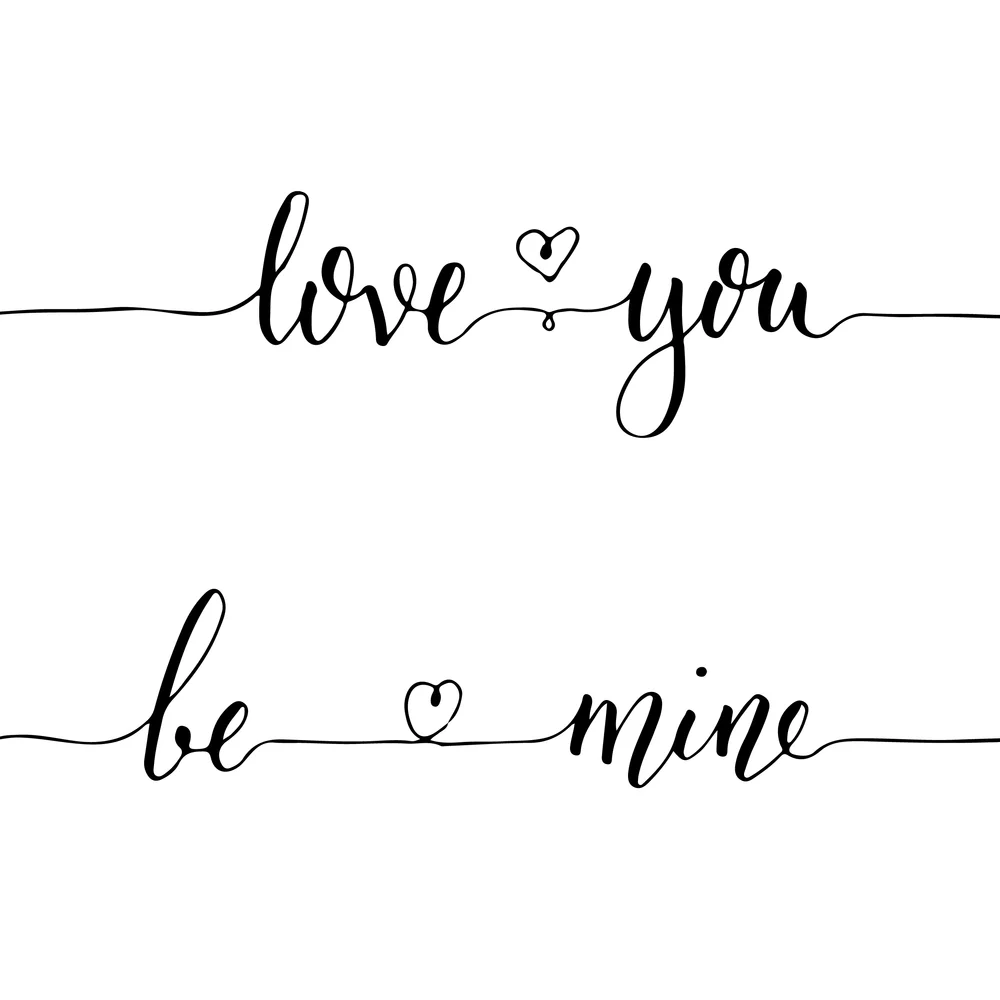 love you
be mine